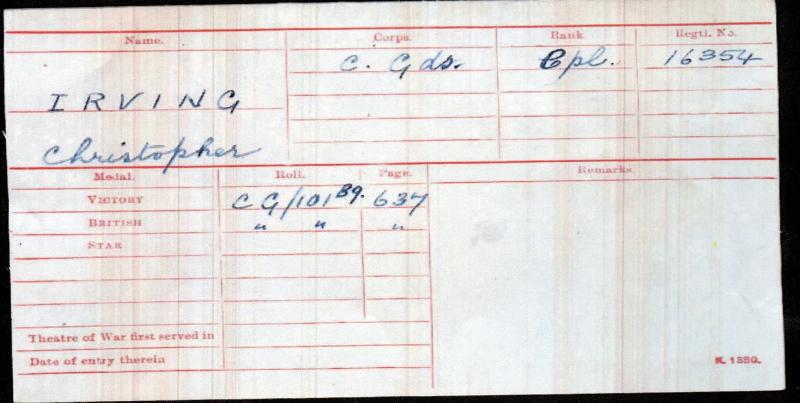 Name. Corps. Rank. Regtl. No.
C. Gds. Cpl. 16354
IRVING
Christopher
Medal. Roll. Page. Remarks.
VICTORY C G/101 B9. 637
BRITISH " " "
STAR
Theatre of War first served in
Date of entry therein
K. 1380.